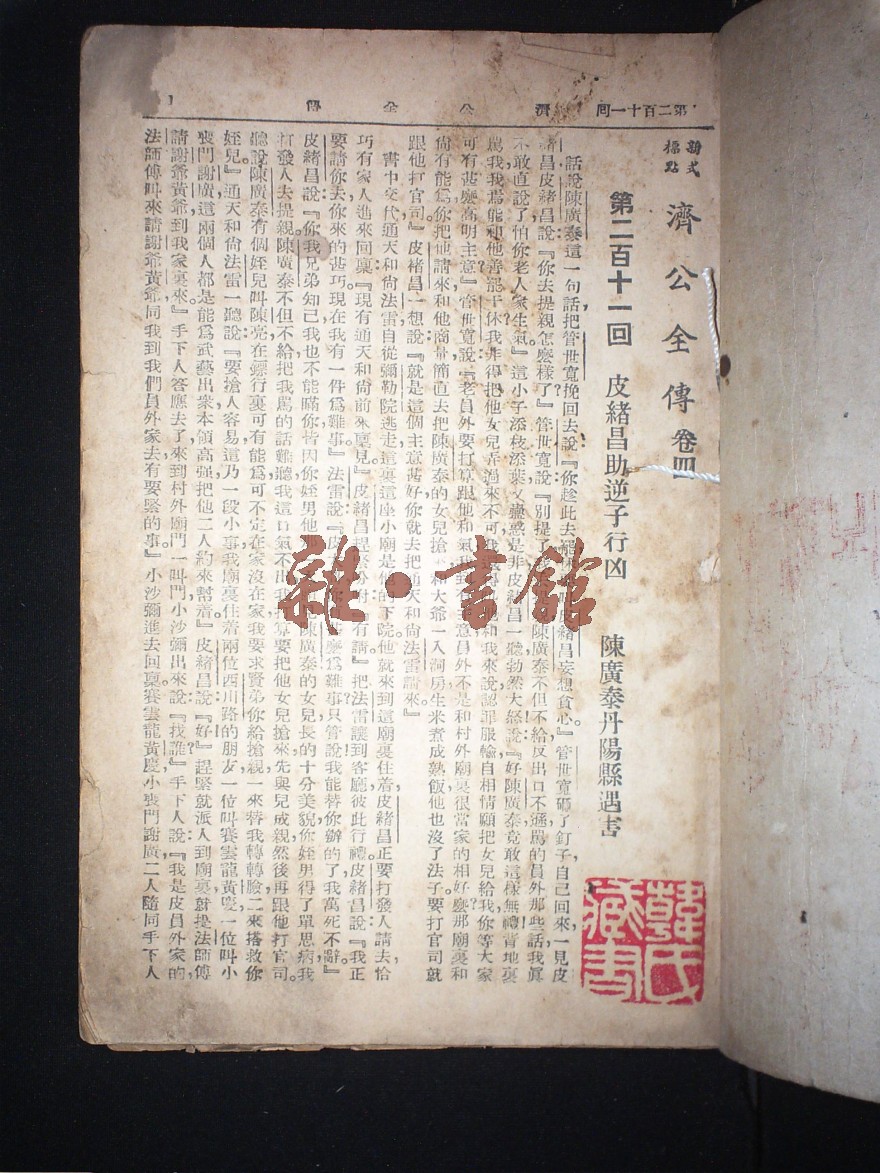 第二百十一回 濟公全傳
新式標點 濟公全傳 卷四
第二百十一回 皮緒昌助逆子行凶 陳廣泰丹陽縣遇害
話說陳廣泰這一句話把管世寬挽回去說『你趁此去罷
緒昌妄想貪心』管世寬碰了釘子自己回來一見皮
緒昌皮緒昌說『你去提親怎麼樣了』管世寬說『別提了
陳廣泰不但不給反出口不遜罵的員外那些話我真
不敢直說了怕你老人家生氣』這小子添枝添葉又蠱惑是非皮緒昌一聽勃然大怒說『好陳廣泰竟敢這樣無禮背地裏
罵我我焉能和他善罷干休我非得把他女兒弄過來不可
和我來說認罪服輸自相情願把女兒給我你等大家
可有甚麼高明主意』管世寬說『老員外要打算跟他和氣
意員外不是和村外廟裏很當家的相好麼那廟裏和
尚有能爲你把他請來和他商量簡直去把陳廣泰的女兒搶
和大爺一入洞房生米煮成熟飯他也沒了法子要打官司就
跟他打官司』皮緒昌一想說『就是這個主意甚好你就去把通天和尚法雷請來』
書中交代通天和尚法雷自從彌勒院逃走這裏這座小廟是他的下院他就來到這廟裏住着皮緒昌正要打發人請去恰
巧有家人進來回稟『現有通天和尚前來稟見』皮緒昌趕緊吩咐『有請』把法雷讓到客廳彼此行禮皮緒昌說『我正
要請你去你來的甚巧現在我有一件爲難事』法雷說『
甚麼爲難事只管說我能替你辦的了我萬死不辭』
皮緒昌說『你我兄弟知己我也不能瞞你皆因你姪男他
陳廣泰的女兒長的十分美貌你姪男得了單思病我
打發人去提親陳廣泰不但不給把我罵的話難聽我這口氣不出我打算要把他女兒搶來先與兒成親然後再跟他打官司
聽說陳廣泰有個姪兒叫陳亮在鏢行裏可有能爲可不定在家沒在家我要求賢弟你給搶親一來替我轉轉臉二來搭救你
姪兒』通天和尚法雷一聽說『要搶人容易這乃一段小事我廟裏住着兩位西川路的朋友一位叫賽雲龍黃慶一位叫小
喪門謝廣這兩個人都是能爲武藝出衆本領高強把他二人約來幫着』皮緒昌說『好』趕緊就派人到廟裏就提法師傅
請謝爺黃爺到我家裏來』手下人答應去了來到村外廟門一叫門小沙彌出來說『找誰』手下人說『我是皮員外家的
法師傅叫來請謝爺黃爺同我到我們員外家去有要緊的事』小沙彌進去回稟賽雲龍黃慶小喪門謝廣二人隨同手下人
雜·書館
韓氏藏書